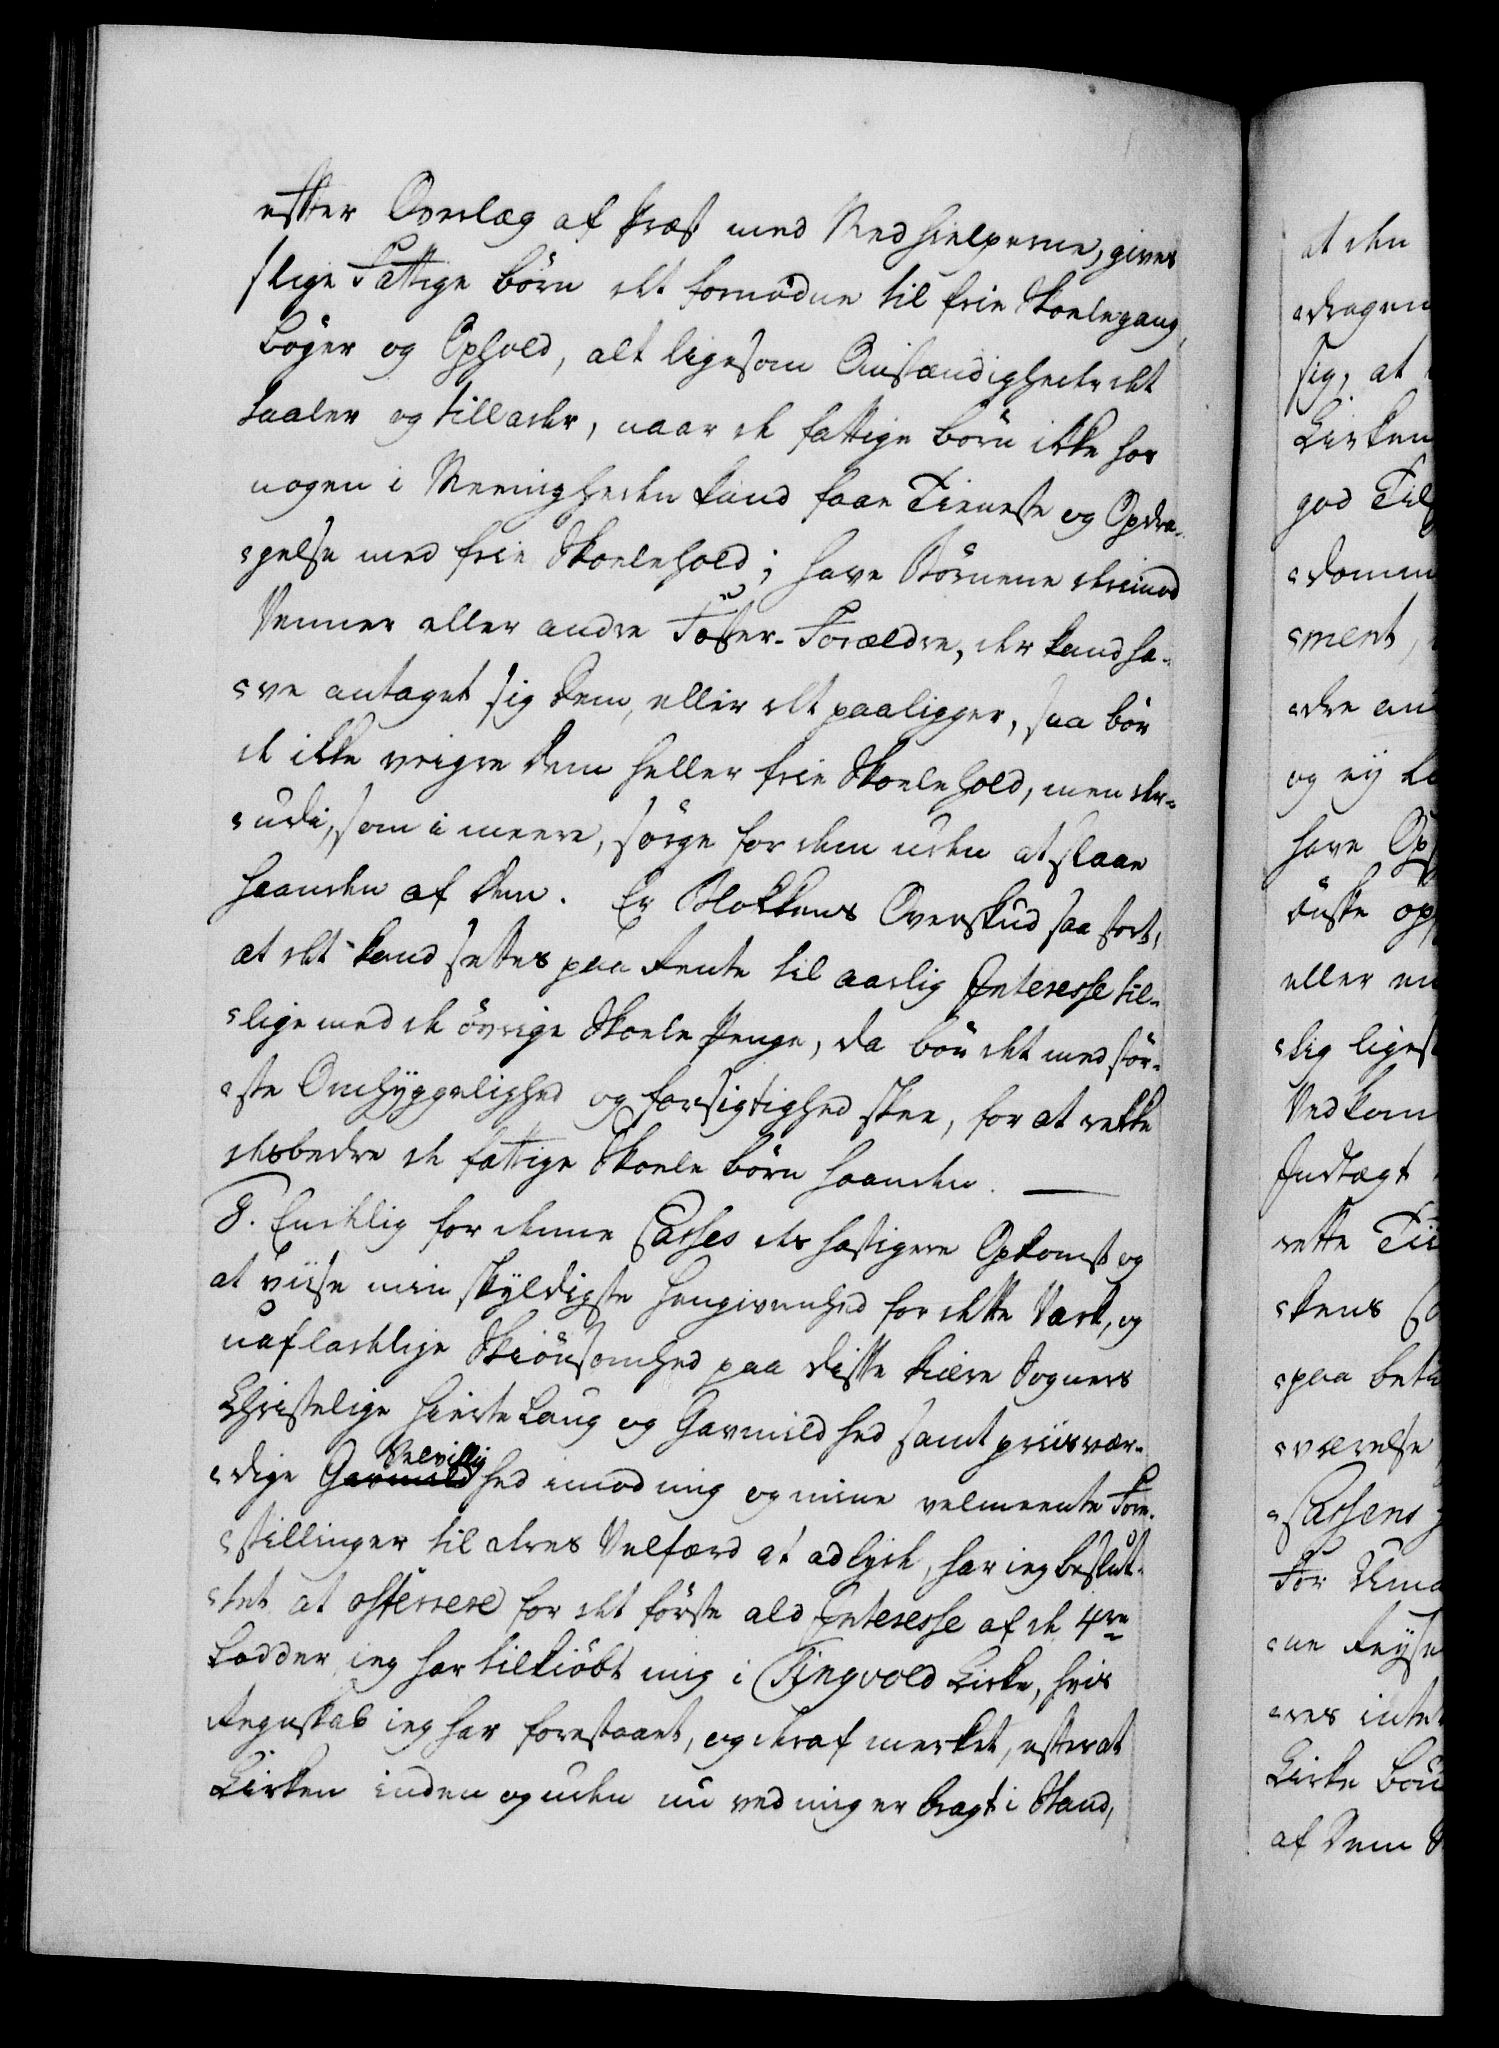 efter Overlæg af Præst med Medhielperne, gives
slige Fattige Børn det fornødne til frie Skoelegang,
Bøger og Ophold, alt ligesom Omstændighederdet
taaler og tillader, naar de fattige Børn ikke hos
nogen i Meenigheden kand faae Tieneste og Opdra-
gelse med frie Skoelehold; have Børnene derimod
Venner eller andre Foster-Forældre, der kand ha-
ve antaget sig dem, eller det paaligger, saa bør
de ikke veigre dem heller frie Skoelehold, men der-
udi, som i meere, sørge for dem uden at slaae
haanden af dem. Er Blokkens Overskud saa stort,
at det kand settes paa Rente til aarlig Interesse til-
lige med de øvrige Skoele Penge, da bør det med stør-
ste Omhyggelighed og forsigtighed skee, for at rekke
desbedre de fattige Skoele børn haanden.
8. Endelig for denne Casses des hastigere Opkomst og
at viise min skyldigste Hengivenhed for dette Værk, og
uafladelige Skiønsomhed paa disse kiære Sogners
Christelige Hierte Laug og Gavmildhed samt priisvær-
dige Gavmild Velvillig hed imod mig og mine velmeente Fore-
stillinger til deres Velfærd at adlyde, har ieg beslut-
tet at offerere for det første ald Interesse af de 4re
Lodder ieg har tilkiøbt mig i Tingvold Kirke, hvis
Regnskab ieg har forestaaet, og deraf merket, efterat
Kirken inden og uden nu ved mig er bragt i Stand,
at den
dragen
sig, at
Kirken
god Til
domm
ment,
dre an
og ey
have Op
ønske op
eller en
tig liges
Vedkom
Indtægt
rette Til
kens
paa bet
værelse
Cassens
For
ne Reyse
res inte
Kirke
af dem